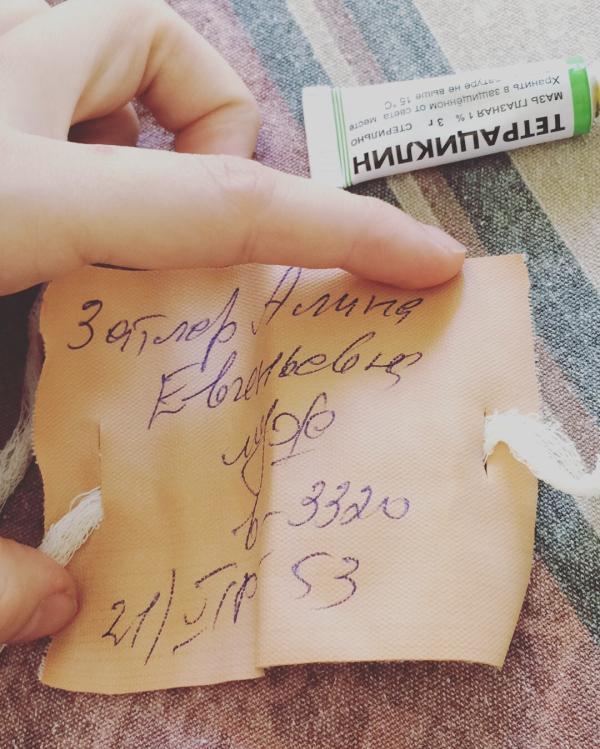 ТЕТРАЦИКЛИН
МАЗЬ ГЛАЗНАЯ 1% 3 г СТЕРИЛЬНО
Хранить в защищённом от света месте
не выше 15 °С
Алина
Евгеньевна
муж
в-3320
21/ 53